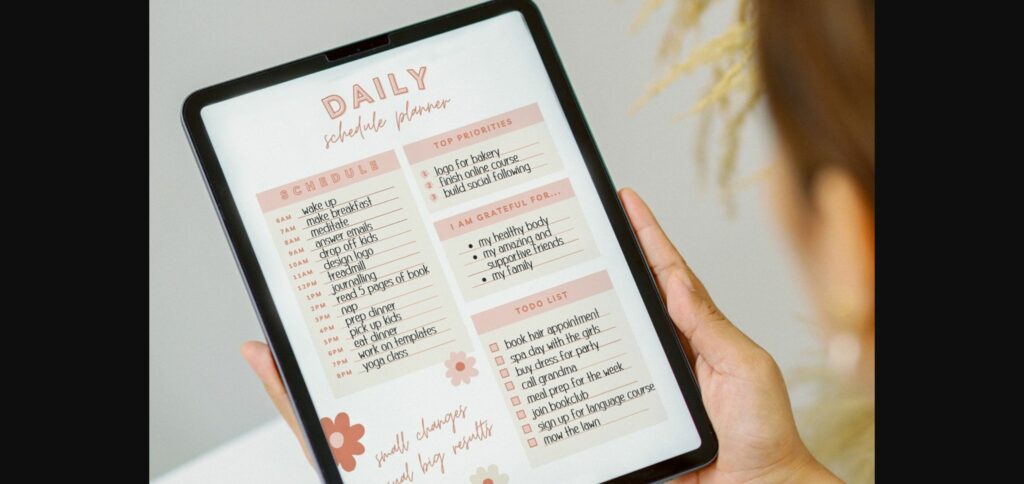 DAILY
schedule planner
SCHEDULE
6AM wake up
7AM make breakfast
8AM meditate
9AM answer emails
10AM drop off kids
11AM design logo
12PM treadmill
1PM journalling
2PM read 5 pages of book
3PM nap
4PM prep dinner
5PM pick up kids
6PM eat dinner
7PM work on templates
8PM yoga class
TOP PRIORITIES
1 logo for bakery
2 finish online course
3 build social following
I AM GRATEFUL FOR...
• my healthy body
• my amazing and
supportive friends
• my family
TODO LIST
book hair appointment
spa day with the girls
buy dress for party
call grandma
meal prep for the week
join bookclub
sign up for language course
mow the lawn
small changes
big results